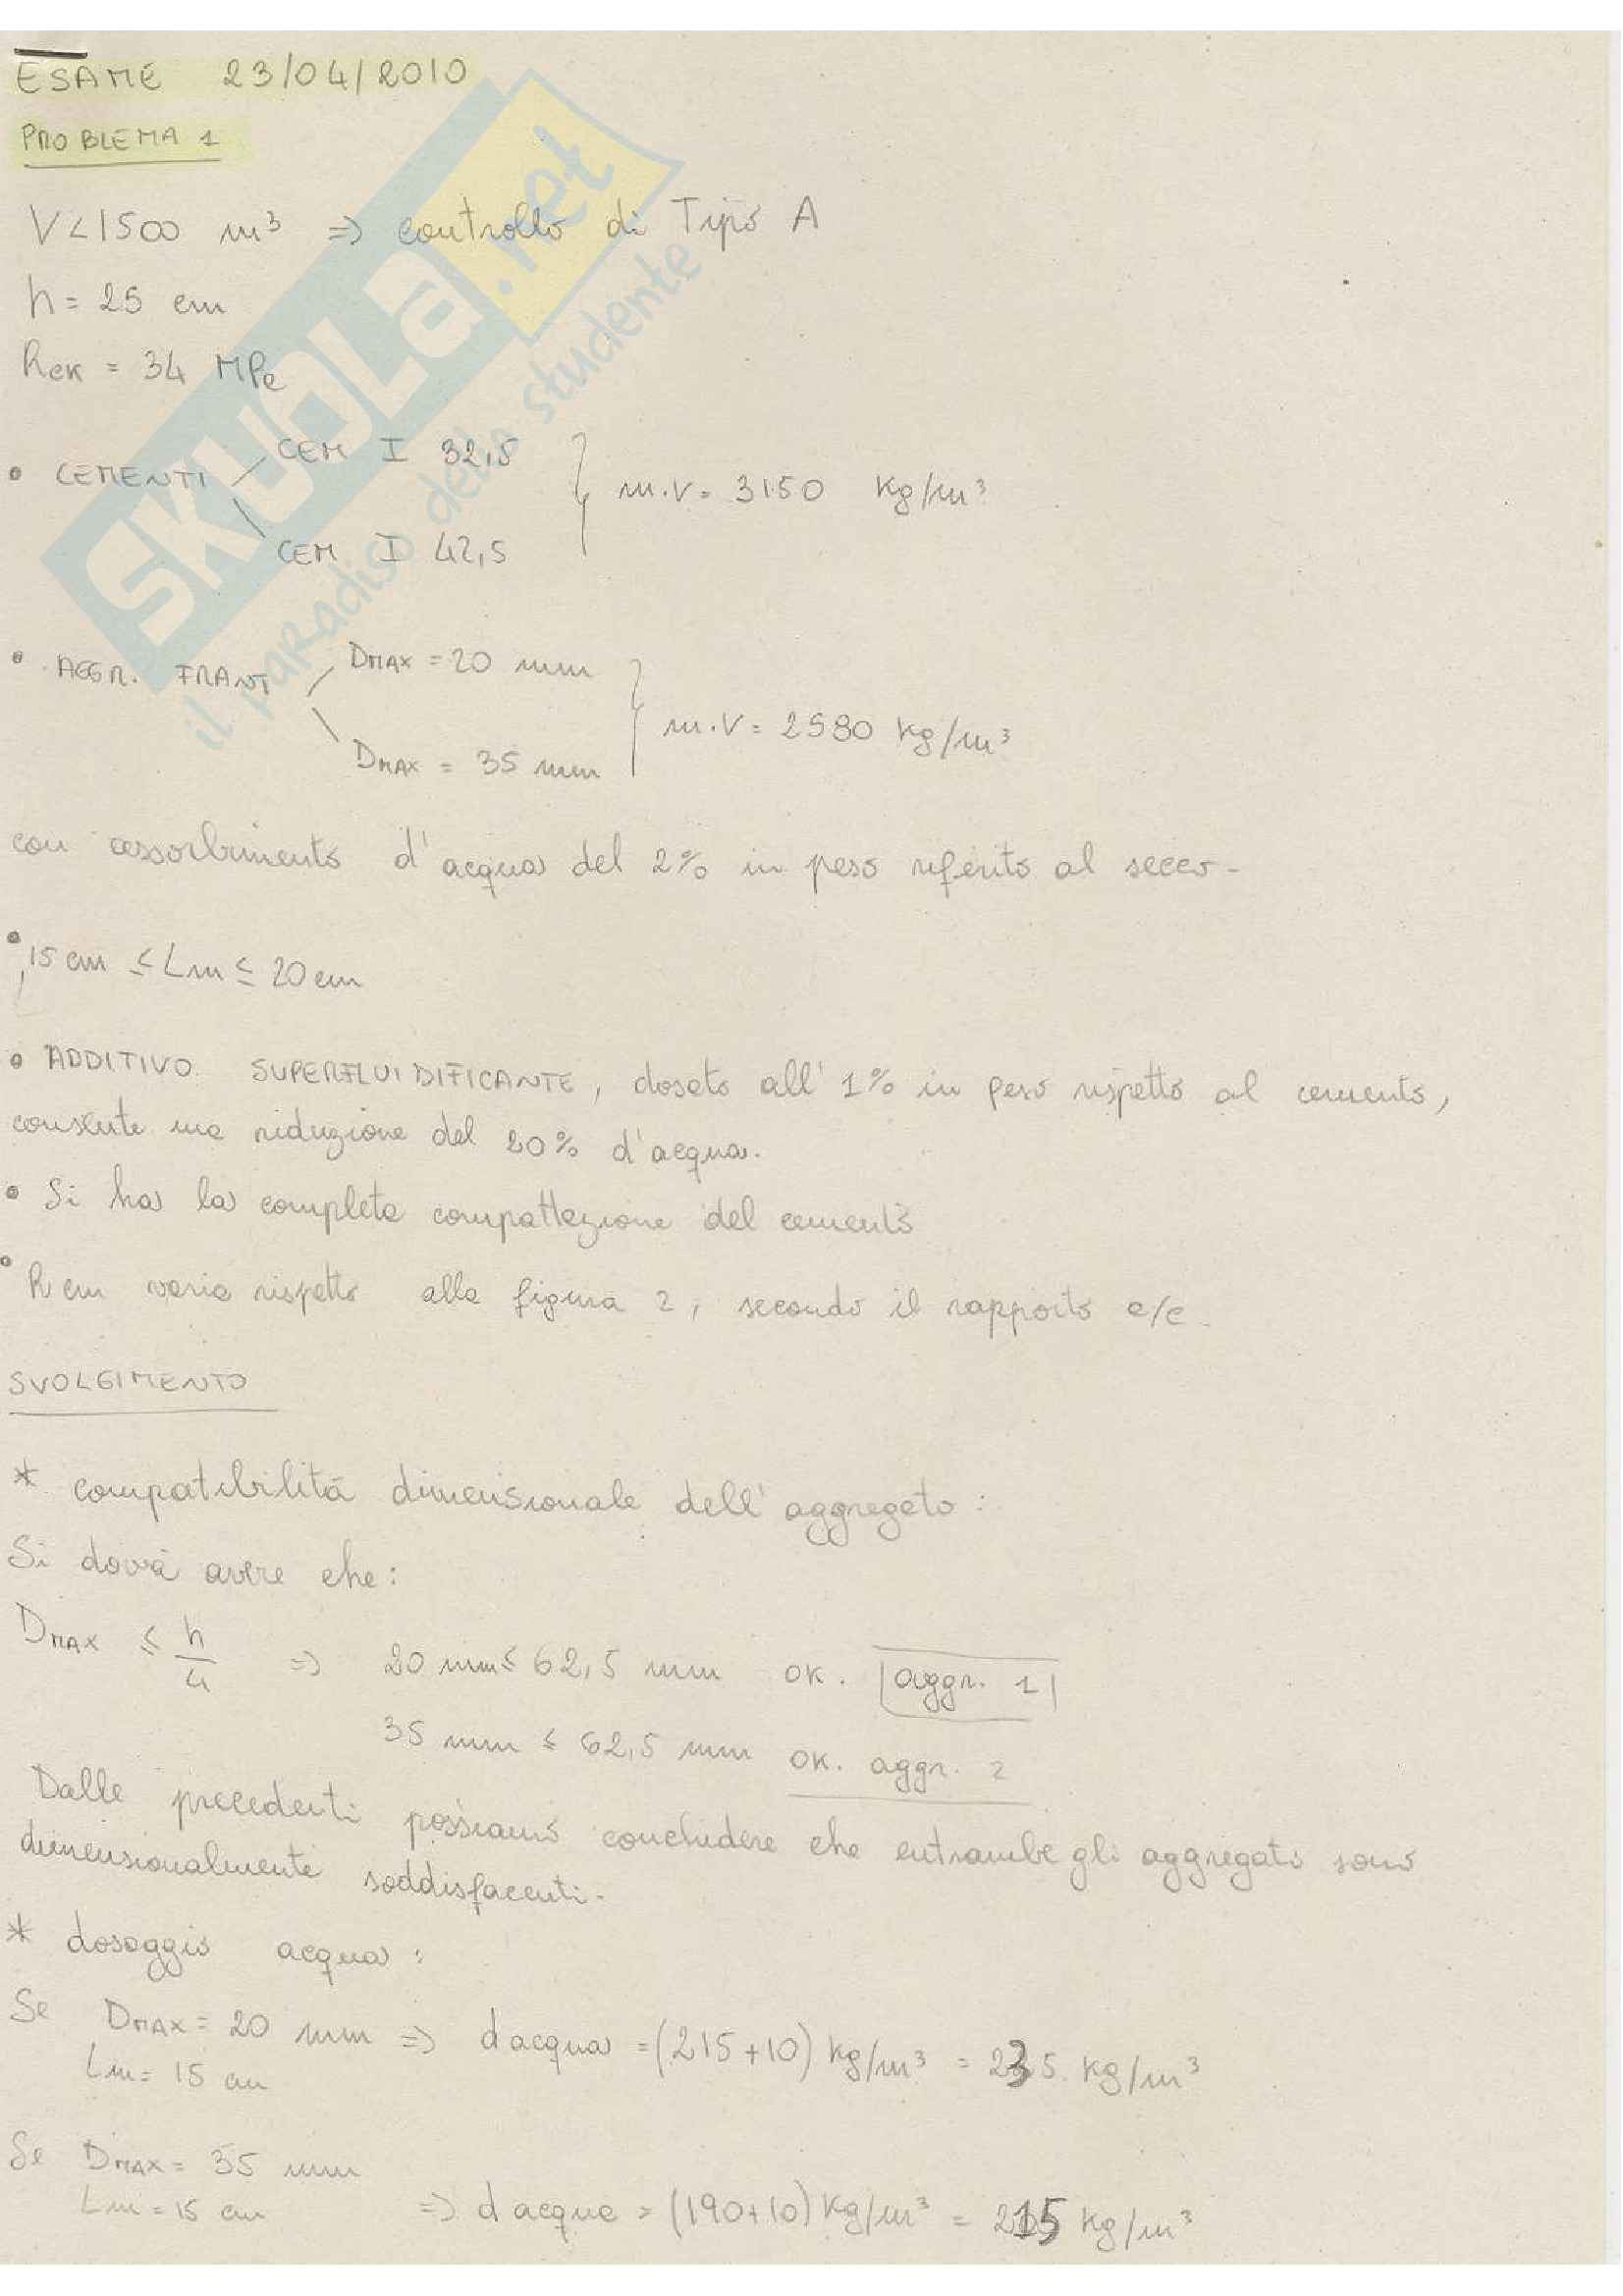 ESAME 23/04/2010
PROBLEMA 1
V<1500 m³ => controllo di Tipo A
h = 25 cm
Rck = 34 MPa
• CEMENTI
CEM I 32,5
CEM I 42,5
m.v = 3150 Kg/m³
• AGGR. FRANT
DMAX = 20 mm
DMAX = 35 mm
m.v = 2580 kg/m³
con assorbimento d'acqua del 2% in peso riferito al secco.
• 15 cm ≤ Lm ≤ 20 cm
• ADDITIVO SUPERFLUIDIFICANTE, dosato all'1% in peso rispetto al cemento,
consente una riduzione del 20% d'acqua.
• Si ha la completa compattazione del cemento
• Rcm varia rispetto alla figura 2, secondo il rapporto a/c.
SVOLGIMENTO
* compatibilità dimensionale dell'aggregato:
Si dovrà avere che:
DMAX ≤ h/4 => 20 mm ≤ 62,5 mm OK. aggr. 1
35 mm ≤ 62,5 mm OK. aggr. 2
Dalle precedenti possiamo concludere che entrambe gli aggregati sono
dimensionalmente soddisfacenti.
* dosaggio acqua:
Se DMAX = 20 mm => d acqua = (215+10) kg/m³ = 235 kg/m³
Lm = 15 cm
Se DMAX = 35 mm
Lm = 15 cm => d acqua = (190+10) Kg/m³ = 215 kg/m³
SKUOLA.net
il paradiso dello studente